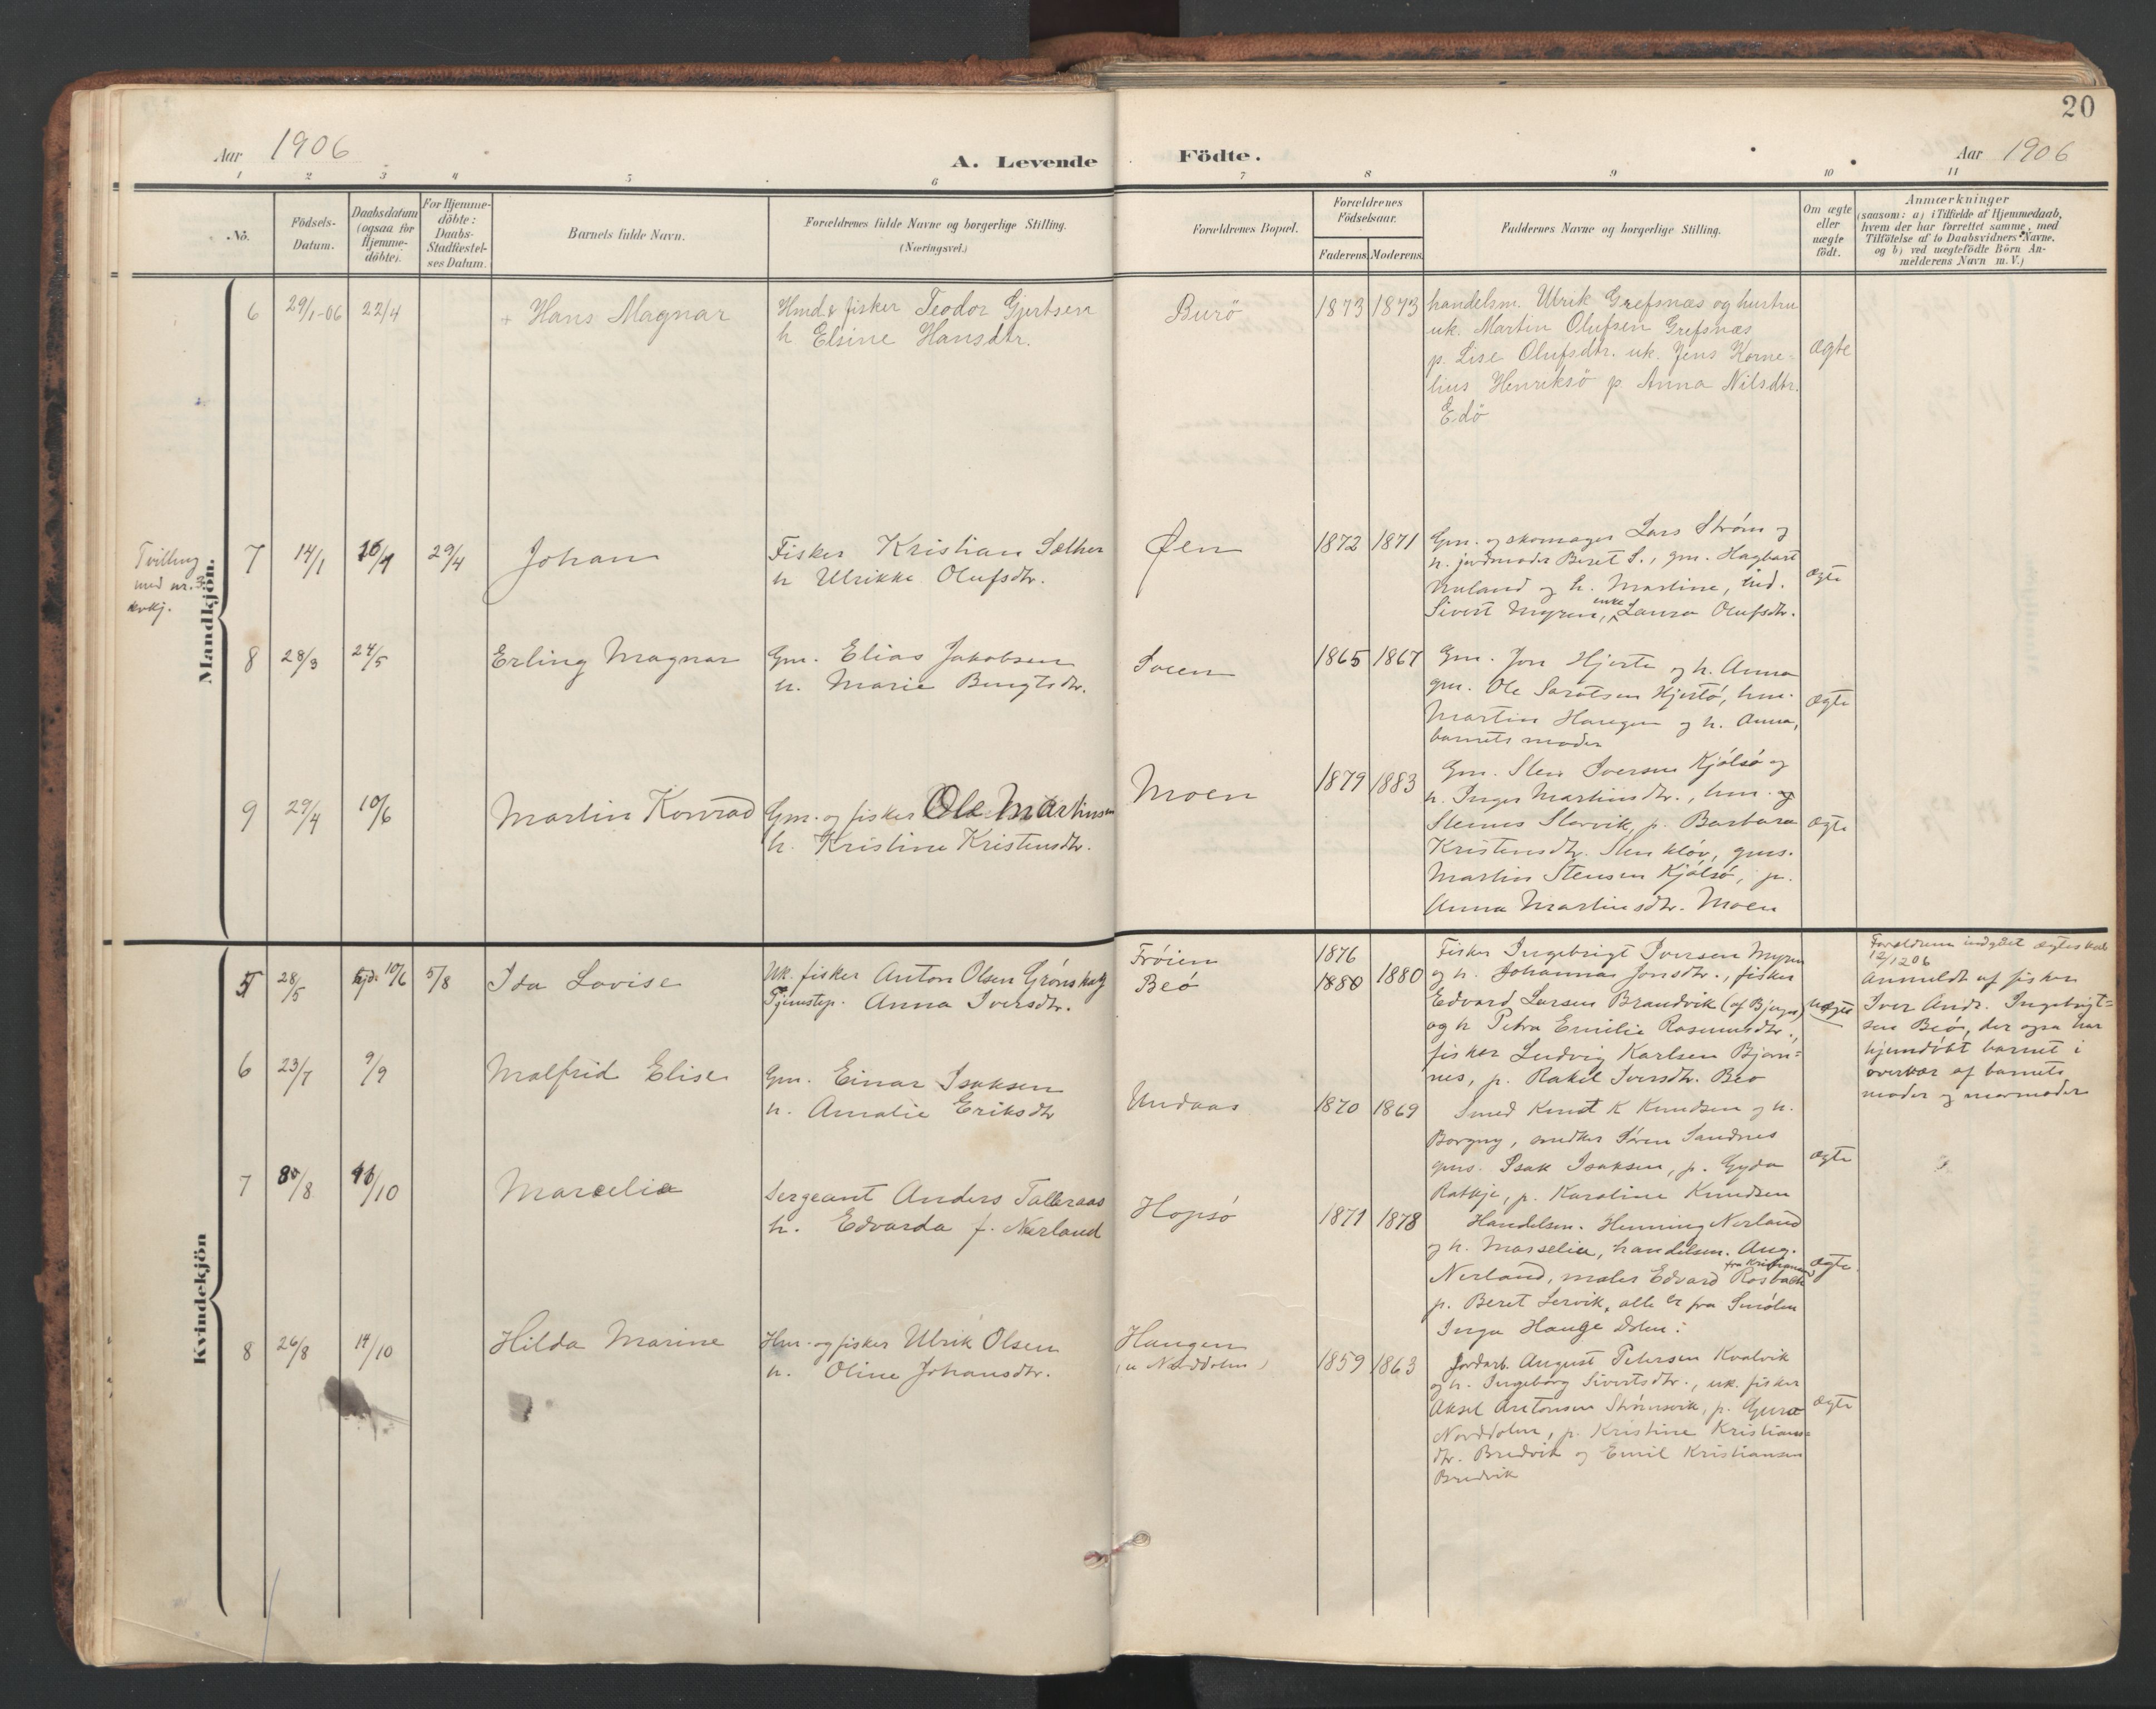 20
Aar 1906
A. Levende Födte.
Aar 1906
1 2 3 4 5 6 7 8 9 10 11
No.
Födsels-Datum.
Daabsdatum (ogsaa for Hjemme-döbte).
For Hjemme-döbte: Daabs-Stadfæstel-ses Datum.
Barnets fulde Navn.
Forældrenes fulde Navne og borgerlige Stilling.
(Næringsvei.)
Forældrenes Bopæl.
Forældrenes Födselsaar.
Faderens. Moderens.
Faddernes Navne og borgerlige Stilling.
Om ægte eller uægte födt.
Anmærkninger
(saasom: a) i Tilfælde af Hjemmedaab,
hvem der har forrettet samme, med
Tilföielse af to Daabsvidners Navne.
og b) ved uægtefödte Börn An-
melderens Navn m. V.)
Mandkjön.
6 29/1-06 22/4 + Hans Magnar
Hmd. & fisker Teodor Gjertsen
h Elsine Hansdtr.
Burö 1873 1873
handelsm. Ulrik Grefsnæs og hustru
uk. Martin Olufsen Grefsnæs
p. Lise Olufsdtr. uk. Jens Korne-
lius Henriksö p Anna Nilsdtr.
Edö
ægte
Tvilling
med nr. 3
kvkj.
7 14/1 29/4 Johan
Fisker Kristian Sæther
h Ulrikke Olufsdtr.
Øen 1872 1871
Gm. og skomager Lars Strøm og
h. jordmoder Beret S., gm. Hagbart
og h. Martine, ind.
Sivert Myren, enke Laura Olufsdtr.
ægte
8 28/3 24/5 Erling Magnar
Gm. Elias Jakobsen
h. Marie Bengtsdtr.
1865 1867
Gm. Jon Hjerte og h. Anna
gm. Ole Hjertö, hm.
Martin Haugen og h. Anna,
barnets moder
ægte
9 29/4 10/6 Martin Konrad
Gm. og fisker Ole Martinsen
h. Kristine Kristensdtr.
Moen 1879 1883
Gm. Sten Iversen Kjölsö og
h. Inger Martinsdtr., hm. og
p. Barbara
Kristensdtr. gms.
Martin Stensen Kjölsö, p.
Anna Martinsdtr. Moen
ægte
Kvindekjön
5 28/5 hjd. 10/6 5/8 Ida Lovise
Uk. fisker Anton Olsen Grönskag
Tjenstep. Anna Iversdtr.
Fröien
Beö
1876
1880 1880
Fisker Ingebrigt Iversen Myren
og h. Johanna Jonsdtr., fisker
Edvard Larsen Brandvik
og h Petra Emilie Rasmusdtr.,
fisker Ludvig Karlsen Bjørn=
nes, p. Rakel Iversdtr. Beo
uægte
Forældrene indgået ægteskab
12/12 06
Anmeldt af fisker
Iver Andr. Ingebrigt=
sen Beö, der ogsa har
hjemdöbt barnet i
overvær af barnets
moder og mormoder
6 23/7 9/9 Malfrid Elise
Gm. Einar Isaksen
h. Amalie Eriksdtr
Undaas 1870 1869
Smed Knut K Knudsen og h.
Borgny, snedker Sören Sandnes
gms. Isak Isaksen, p. Gyda
Ratkje, p. Karoline Knudsen
ægte
7 Marcelie
Sergeant Anders Talleraas
h. Edvarda f. Nerland
Hopsö 1871 1878
Handelsm. Henning Nerland
og h. Masselia, handelsm. Aug.
Nerland, maler Edvard Rosbach
p. Beret Lervik, alle er fra Smölen
Inga Hauge
ægte.
8 26/8 14/10 Hilda Marine
Hm. og fisker Ulrik Olsen
h. Oline Johansdtr.
Haugen
(u Norddalen)
1859 1863
Jordarb. August Petersen Kvalvik
og h. Ingeborg Sivertsdtr., uk. fisker
Aksel Antonsen Strömsvik, p. Gura
Norddalen, p. Kristine Kristians=
dtr. Bredvik og Emil Kristiansen
Bredvik
ægte